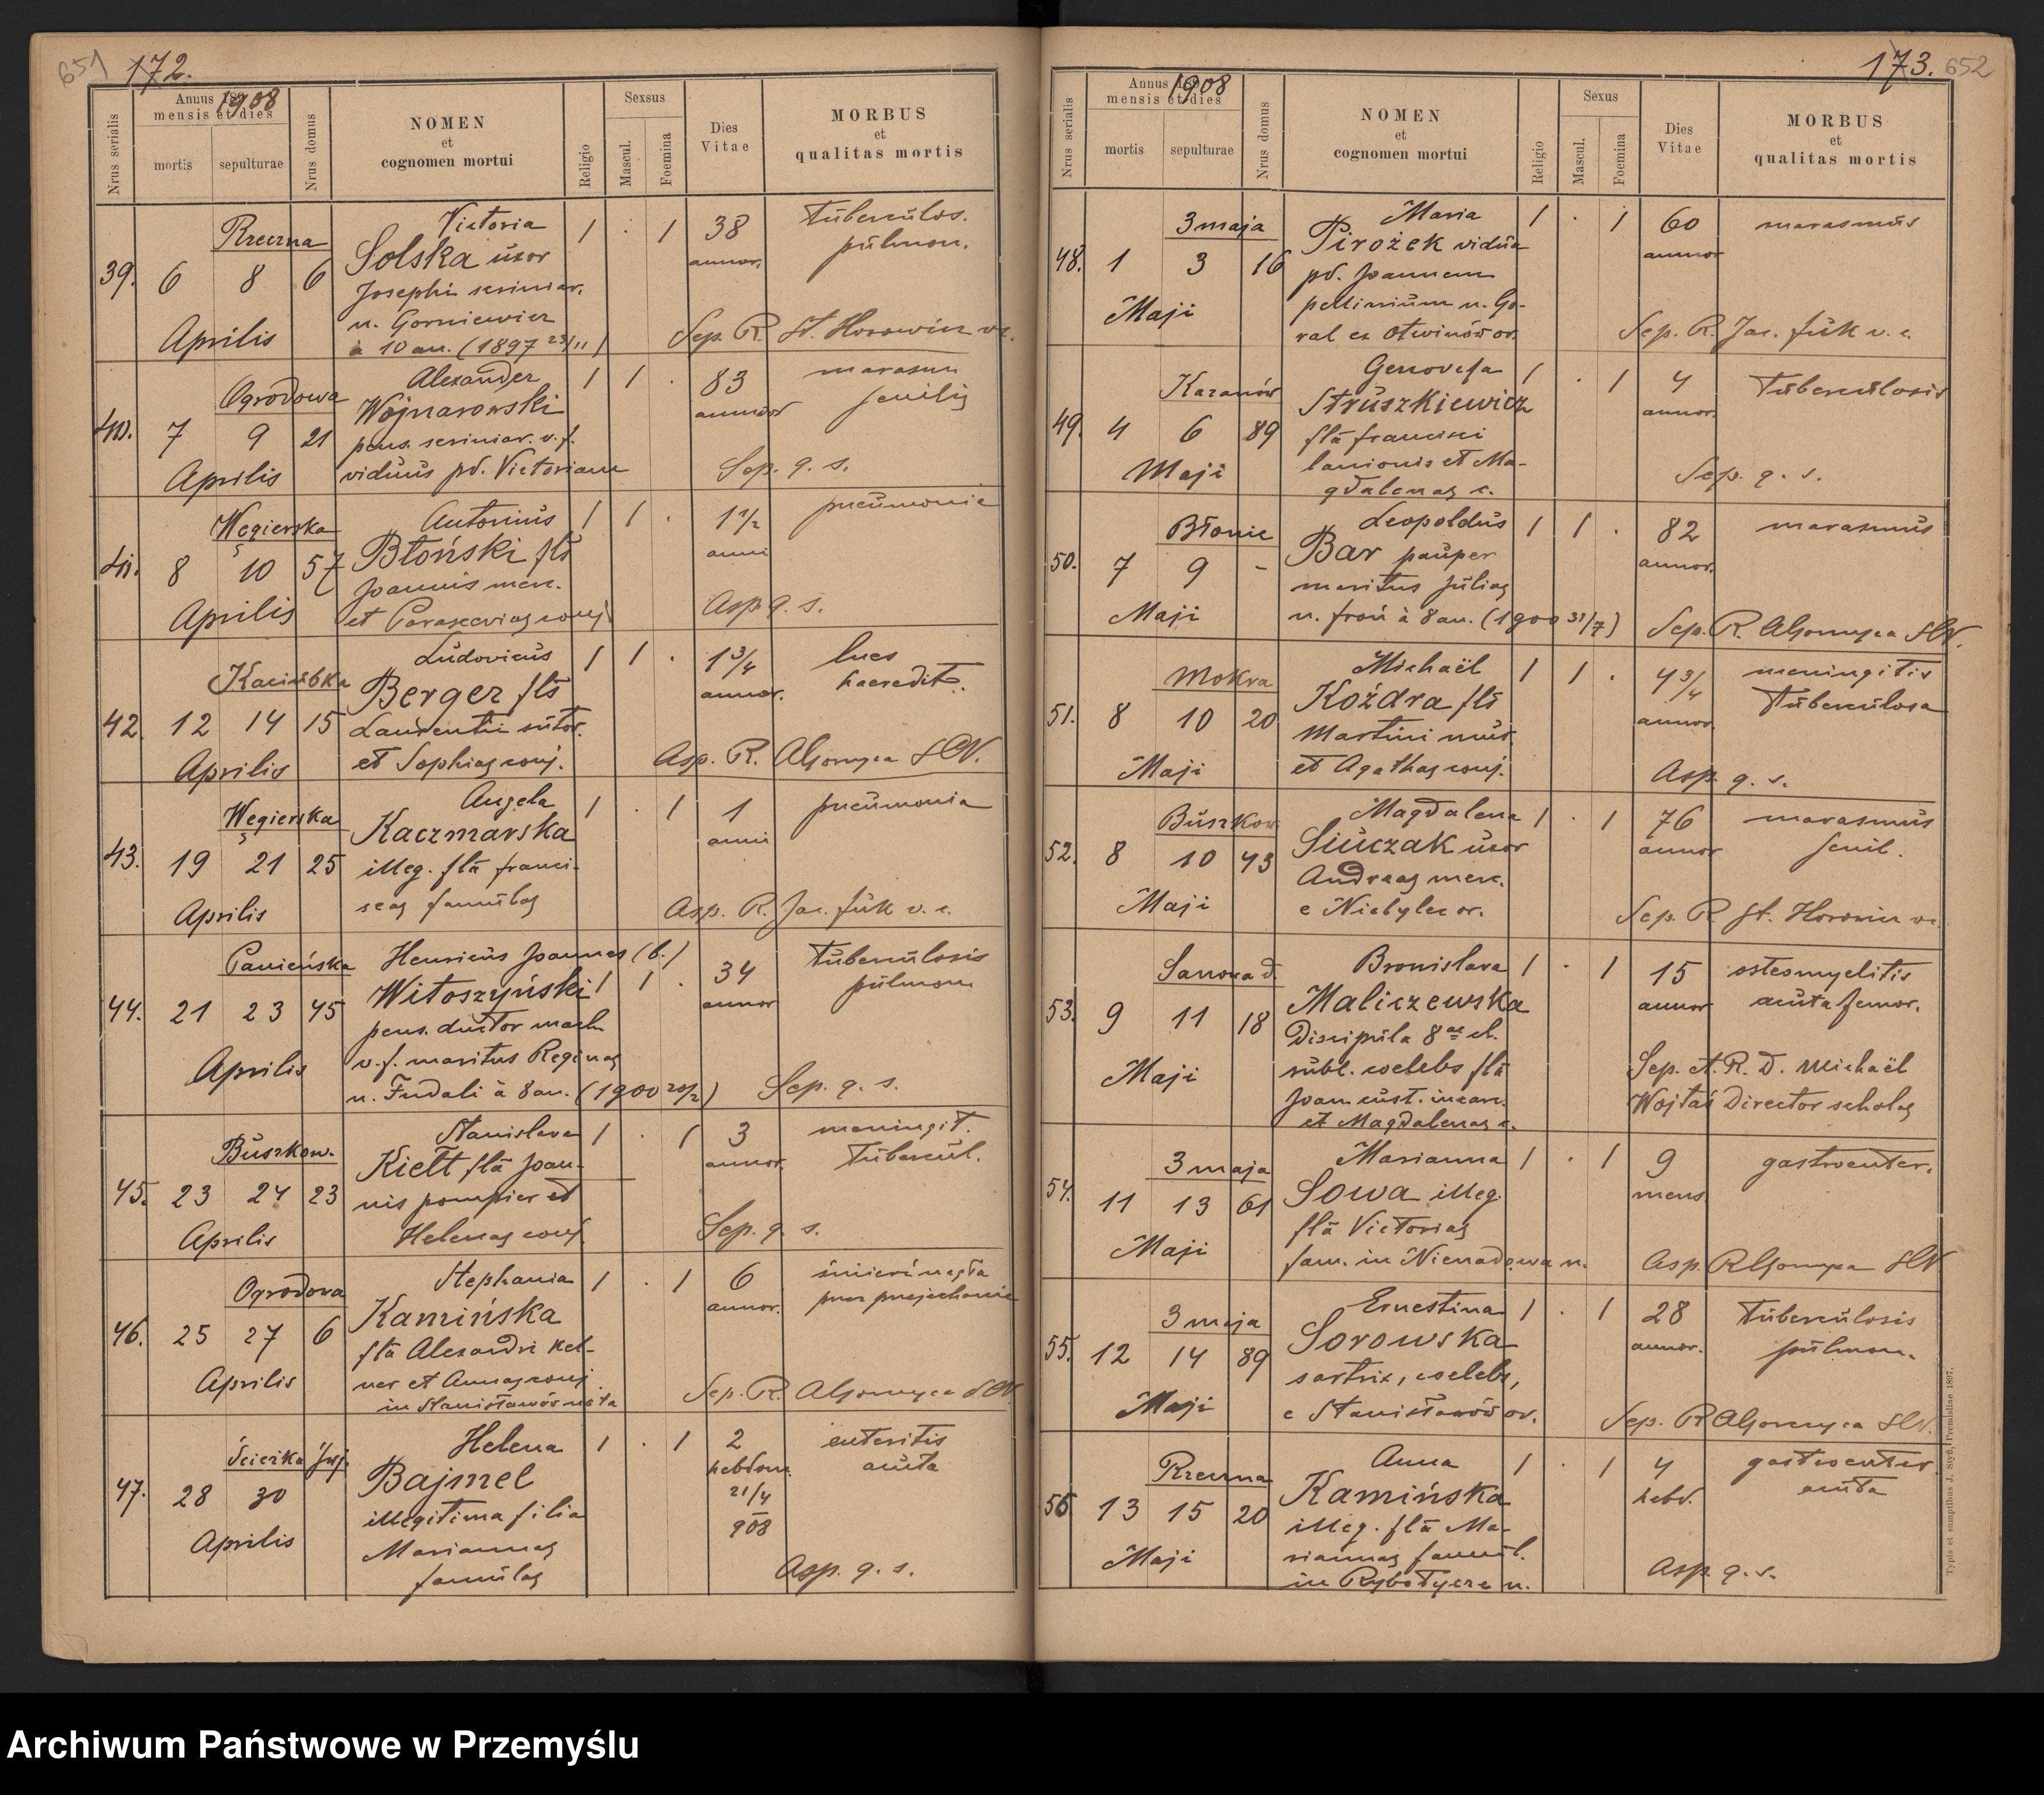 651 172.
Nrus serialis
Annus 1908
mensis et dies
mortis
sepulturae
Nrus domus
NOMEN
et
cognomen mortui
Religio
Sexsus
Mascul.
Foemina
Dies
Vitae
MORBUS
et
qualitas mortis
39. 6 8 6
Rzeczna
Aprilis
Victoria
Solska uxor
Josephi scriniar.
n. Gorniewicz
à 10 an. (1897 23/11)
1 . 1
38
annor.
tubercülos.
pülmon.
Sep. R. St. Horowicz vc.
40. 7 9 21
Ogrodowa
Aprilis
Alexander
Wojnarowski
pens. scriniar. v. f.
viduus pd. Victoriam
1 1 .
83
annor
marasm
senilis
Sep. q. s.
41. 8 10 57
Węgierska
Aprilis
Antonius
Błoński fls
Joannis merc.
et Parasceviae conj.
1 1 .
1 1/2
anni
pneumonia
Asp. q. s.
42. 12 14 15
Aprilis
Ludovicus
Berger fls
Laurentii sutor.
et Sophiae conj.
1 1 .
1 3/4
annor.
lues
haeredit.
Asp. R.
43. 19 21 25
Węgierska
Aprilis
Angela
Kaczmarska
illeg. fla Franci-
scae famulae
1 . 1
1
anni
pneumonia
Asp. R. Jac. Fük v. c.
44. 21 23 45
Panieńska
Aprilis
Henricus Joannes (b.)
Witoszyński
pens. ductor mach.
v. f. maritus Reginae
n. Fudali à 8 an. (1900 20/2)
1 1 .
34
annor
tuberculosis
pulmon
Sep. q. s.
45. 23 24 23
Buszkow.
Aprilis
Stanislava
Kiełt fla Joan-
nis pompier et
Helenae conj.
1 . 1
3
annor.
meningit.
tubercul.
Sep. q. s.
46. 25 27 6
Ogrodowa
Aprilis
Stephania
Kamińska
fla Alexandri kel-
ner et Annae conj
in Stanisławów nata
1 . 1
6
annor.
śmierć nagła
przez przejechanie
Sep. R.
47. 28 30
Aprilis
Helena
Bajmel
illegitima filia
Mariannae
famulae
1 . 1
2
hebdom.
21/4
908
enteritis
acuta
Asp. q. s.
173. 652
Nrus serialis
Annus 1908
mensis et dies
mortis
sepulturae
Nrus domus
NOMEN
et
cognomen mortui
Religio
Sexus
Mascul.
Foemina
Dies
Vitae
MORBUS
et
qualitas mortis
48. 1 3 16
3 maja
Maji
Maria
Pirożek vidua
pd. Joannem
n. Go-
ral ex Otwinów or.
1 . 1
60
annor
marasmus
Sep. R. Jac. Fük v. c.
49. 4 6 89
Kazanów
Maji
Genovefa
Struszkiewicz
fla Francisci
lanionis et Ma-
gdalenae c.
1 . 1
4
annor.
Tuberculosis
Sep. q. s.
50. 7 9 -
Błonie
Maji
Leopoldus
Bar pauper
maritus Juliae
n. Froń à 8 an. (1900 31/7)
1 1 .
82
annor.
marasmus
Sep. R.
51. 8 10 20
Mokra
Maji
Michaël
Koźdra fls
Martini mur.
et Agathae conj.
1 1 .
4 3/4
annor.
meningitis
Tuberculosa
Asp. q. s.
52. 8 10 43
Buszkow
Maji
Magdalena
Siuczak uxor
Andreae merc.
e Niebylec or.
1 . 1
76
annor
marasmus
senil.
Sep. R. St. Horowicz vc.
53. 9 11 18
Maji
Bronislava
Maliczewska
Discipula 8ae cl.
coelebs fla
Joan cust. incarc.
et Magdalenae c.
1 . 1
15
annor
osteomyelitis
acuta femor.
Sep. A. R. D. Michaël
Wojtaś Director scholae
54. 11 13 61
3 maja
Maji
Marianna
Sowa illeg.
fla Victoriae
fam. in Nienadowa n.
1 . 1
9
mens
gastroenter.
Asp. R
55. 12 14 89
3 maja
Maji
Ernestina
Sorowska
sartrix, coelebs,
e Stanisławów or.
1 . 1
28
annor.
tuberculosis
pulmon.
Sep. R
56 13 15 20
Rzeczna
Maji
Anna
Kamińska
illeg. fla Ma-
riannae famul.
in Rybotycze n.
1 . 1
4
hebd.
gastroenter
acuta
Asp q. s.
Typis et sumptibus J. Styfi, Premisliae 1897.
Archiwum Państwowe w Przemyślu